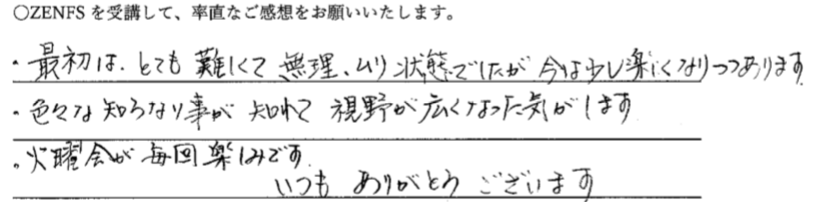 ○ZENFSを受講して、率直なご感想をお願いいたします。
・最初は、とても難しくて無理、ムリ状態でしたが今は少し楽しくなりつつあります
・色々な知らない事が知れて視野が広くなった気がします
・火曜会が毎回楽しみです。
いつもありがとうございます